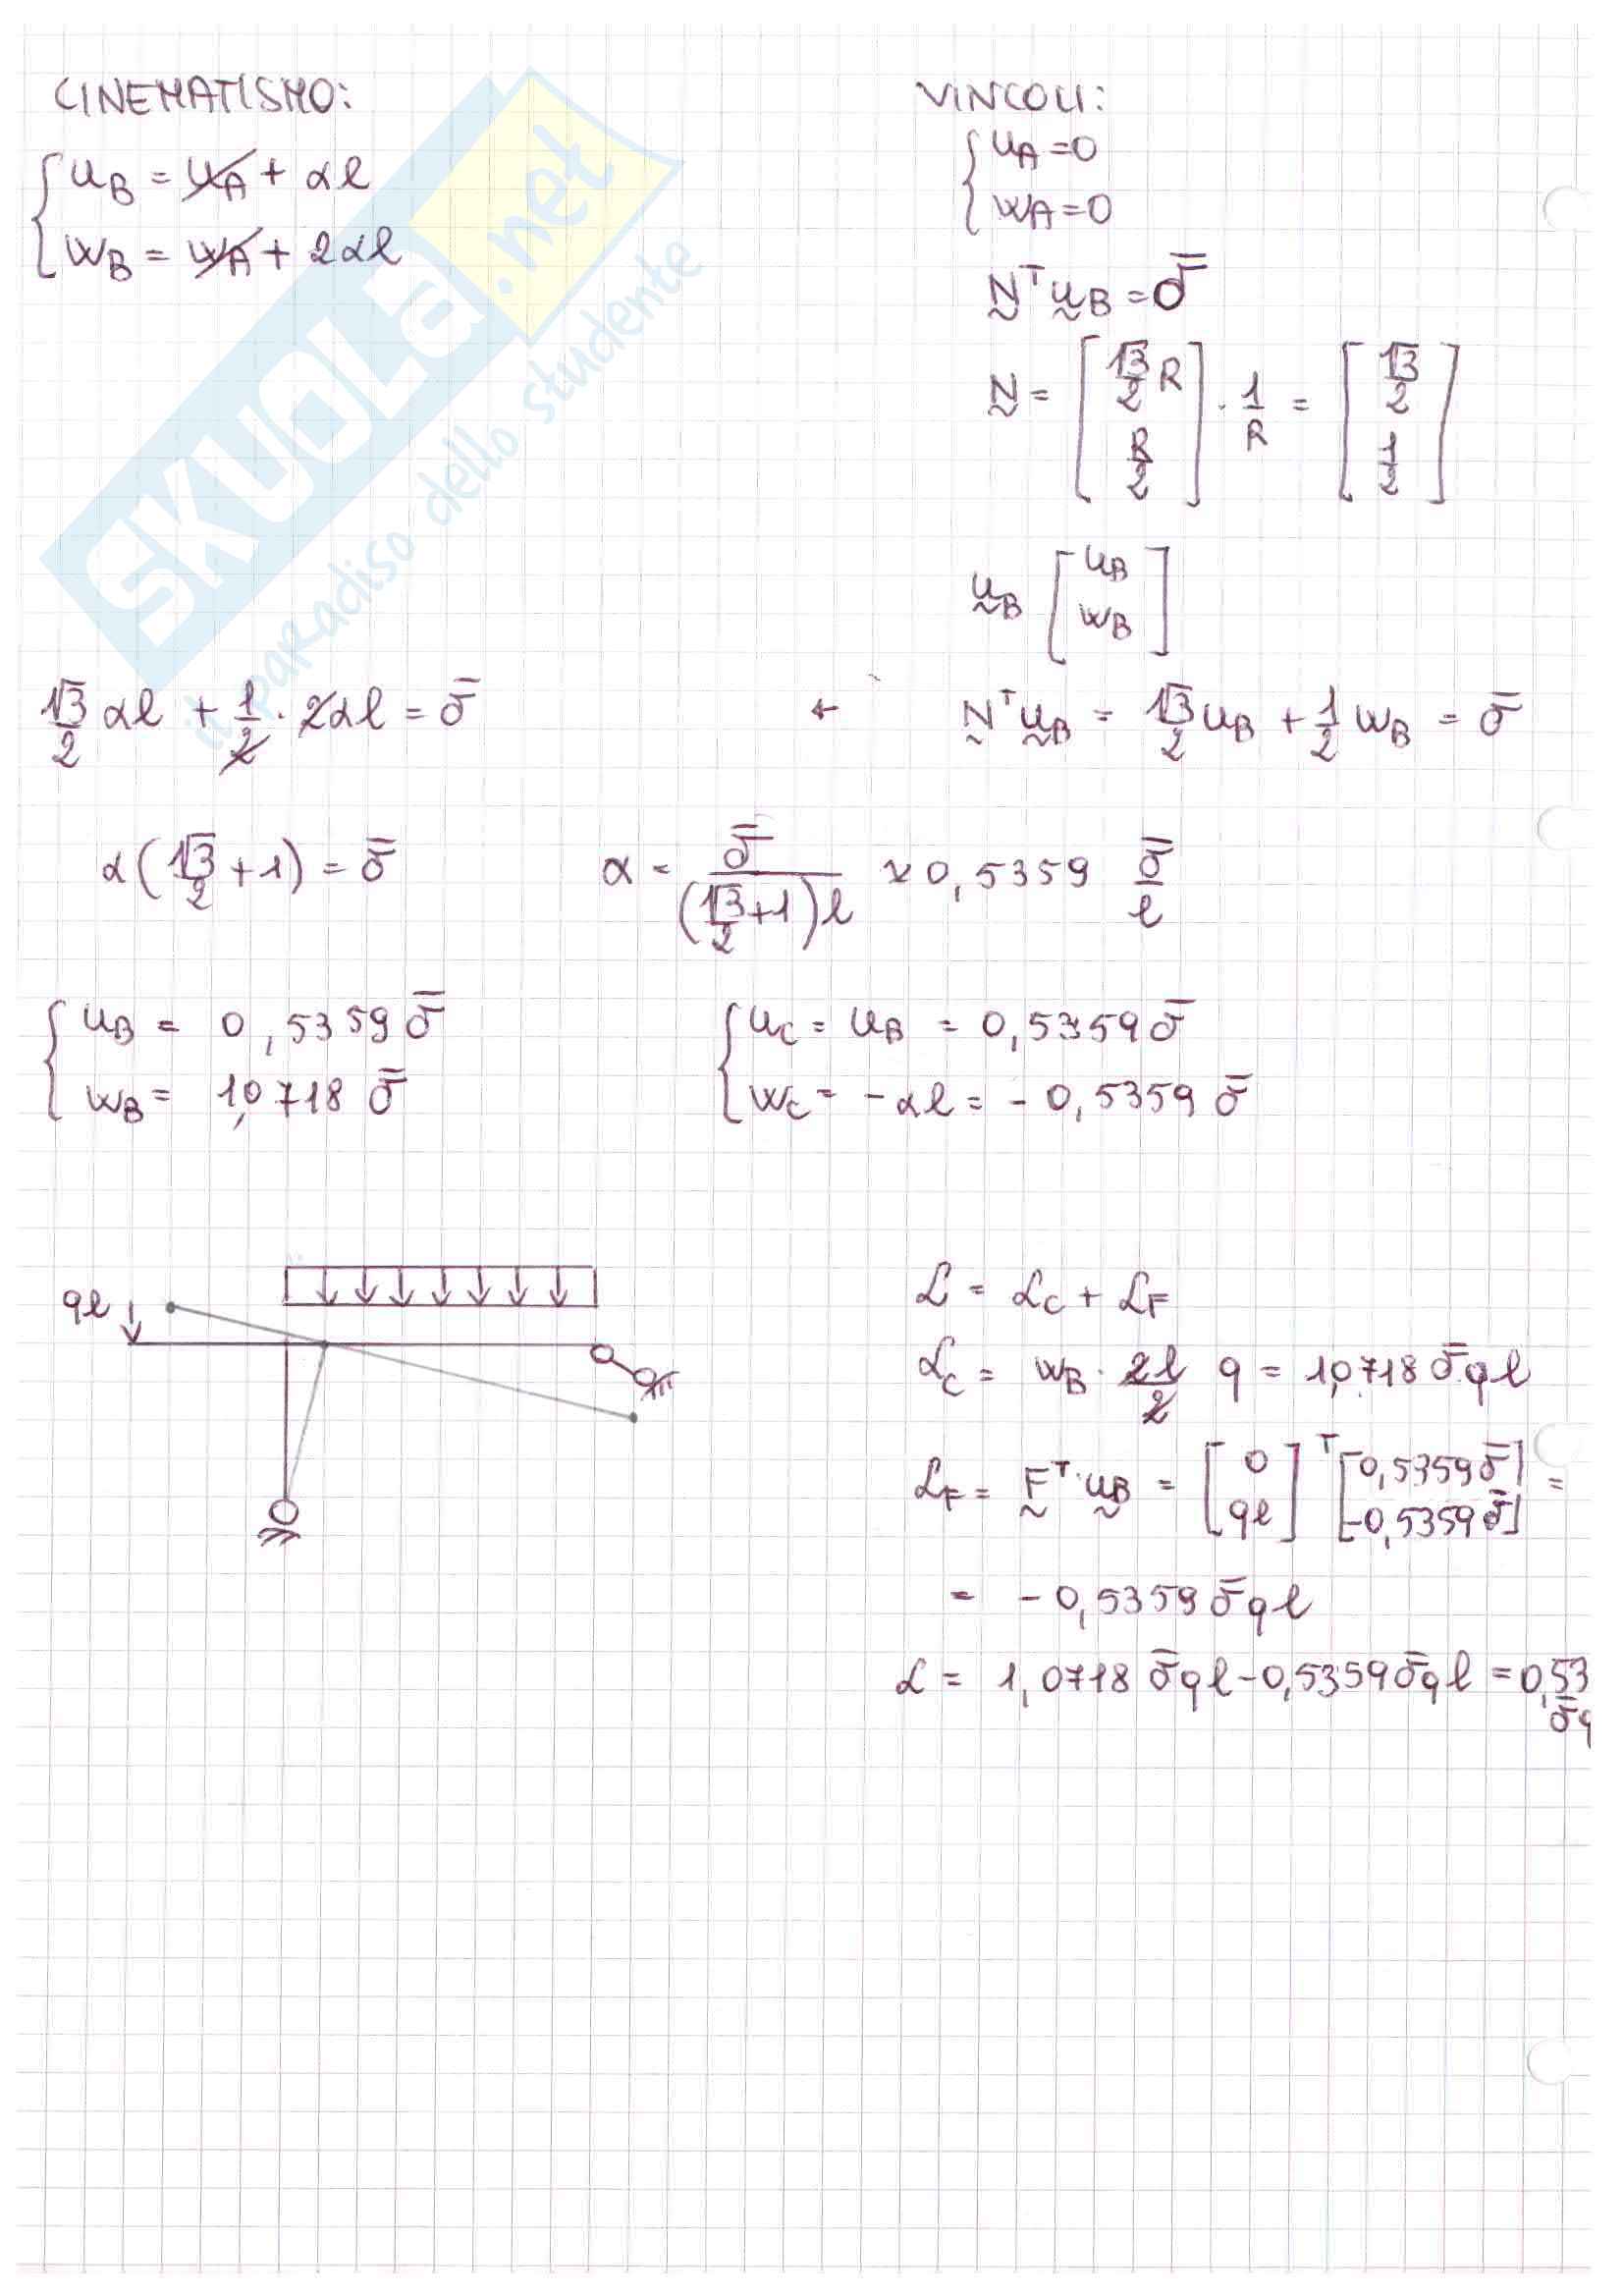 CINEMATISMO:
u_B = u_A + αl
w_B = w_A + 2αl
VINCOLI:
u_A = 0
w_A = 0
N^T u_B = σ̄
N = [√3/2 R; R/2] · 1/R = [√3/2; 1/2]
u_B [u_B; w_B]
√3/2 αl + 1/2 · 2αl = σ̄ ← N^T u_B = √3/2 u_B + 1/2 w_B = σ̄
α(√3/2 + 1) = σ̄ α = σ̄/((√3/2 + 1)l) ≈ 0,5359 σ̄/l
u_B = 0,5359 σ̄
w_B = 1,0718 σ̄
u_C = u_B = 0,5359 σ̄
w_C = - αl = - 0,5359 σ̄
ql
L = L_C + L_F
L_C = w_B · 2l/2 q = 1,0718 σ̄ql
L_F = F^T · u_B = [0; ql]^T [0,5359σ̄; -0,5359σ̄] =
= - 0,5359 σ̄ql
L = 1,0718 σ̄ql - 0,5359 σ̄ql = 0,53
σ̄q
SKUOLA.net
il paradiso dello studente